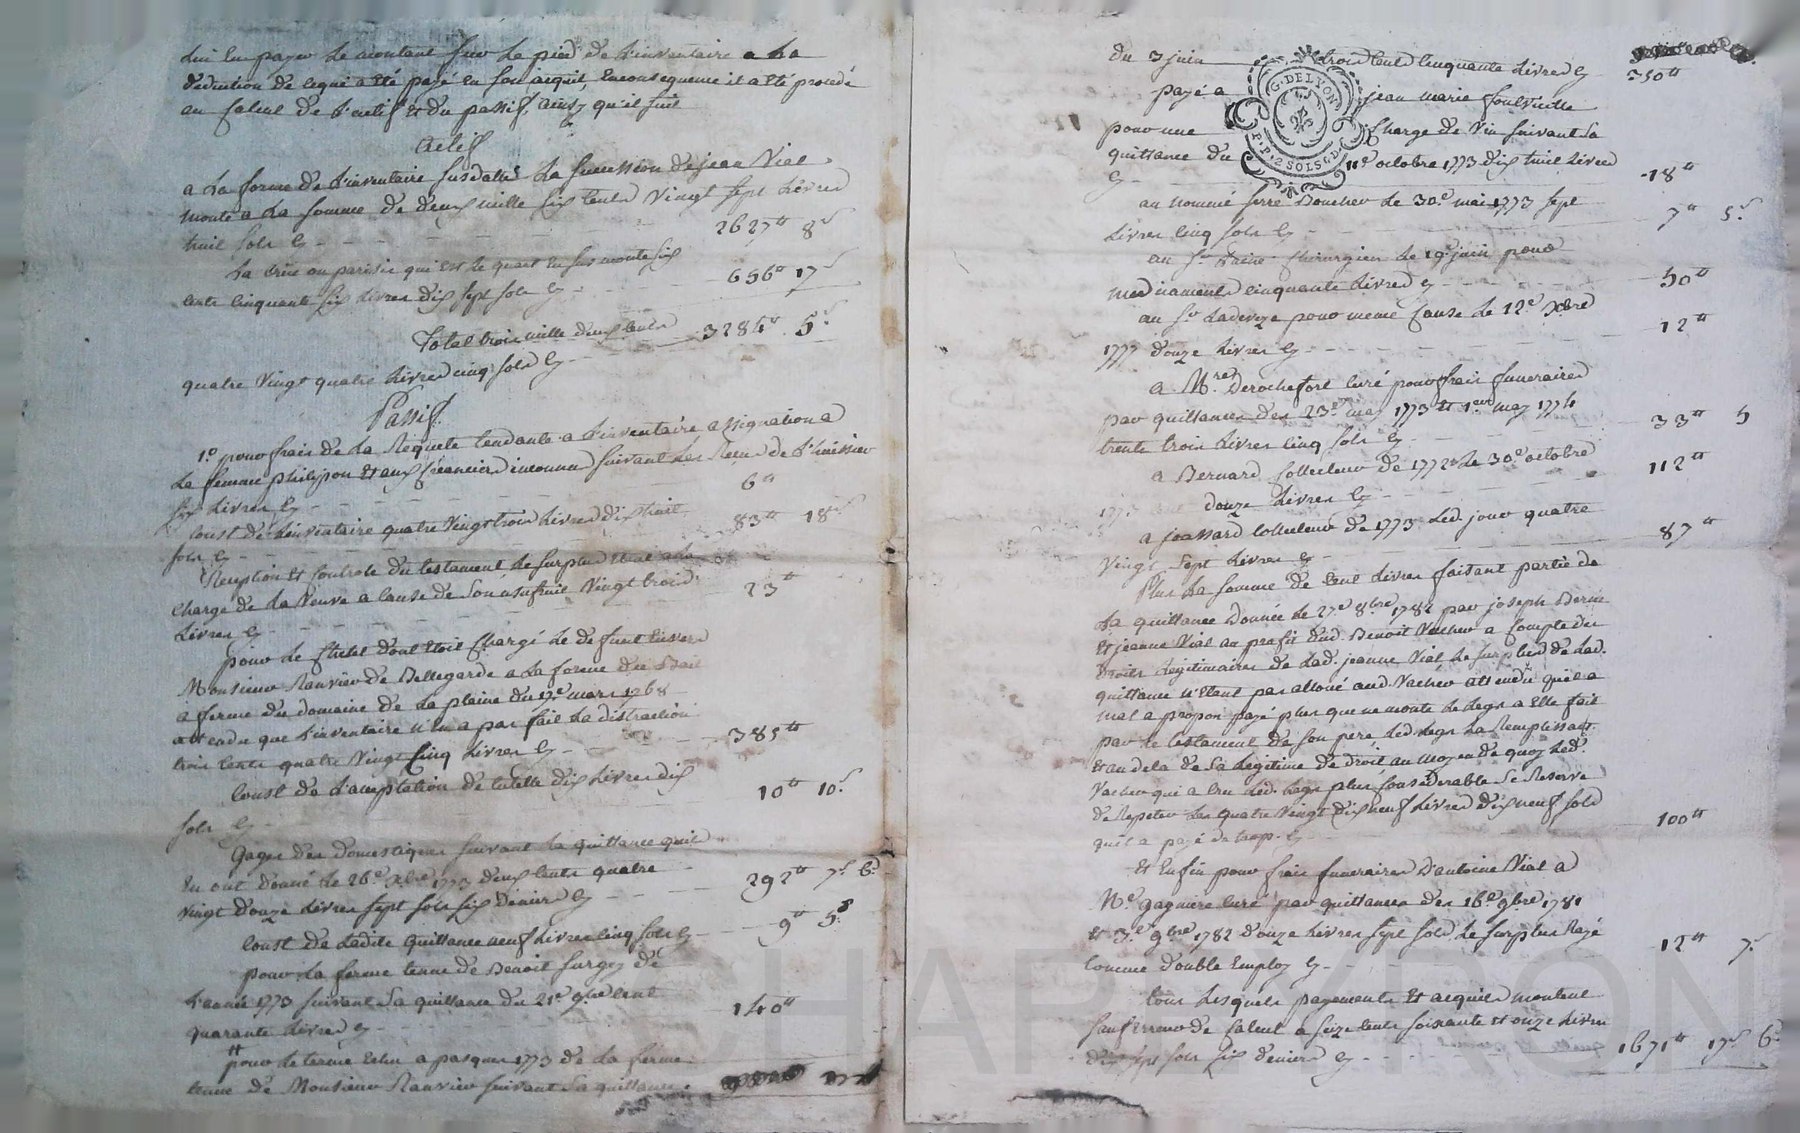 lui en payer le montant sur le pied de l'inventaire a la
deduction de ce qui a été payé en son acquit, en consequence il a été procedé
au calcul de l'actif et du passif, ainsy qu'il suit
Actif
a la forme de l'inventaire susdatté la succession de jean Vial
monte a la somme de deux mille six cents vingt sept livres
huit sols cy - - - 2627# 8s
la crue ou parisis qui est le quart en sus monte six
cents cinquante six livres dix sept sols cy - - 656# 17s
Total trois mille deux cents 3284# 5s
quatre vingt quatre livres cinq sols cy -
Passif
1° pour frais de la Requete tendante a l'inventaire assignation a
la femme philipon et aux creanciers inconnus suivant les de l'huissier
six livres cy - - - 6#
coust de l'inventaire quatre vingt trois livres dix huit 83# 18s
sols cy -
Reception et controle du testament le surplus
charge de la veuve a cause de son usufruit vingt trois 23#
livres cy -
pour le cheptel dont etoit chargé le defunt envers
Monsieur Ranvier de Bellegarde a la forme du Bail
a ferme du domaine de la plaine du 17e mars 1768
attendu que l'inventaire n'en a pas fait la distraction
trois cents quatre vingt cinq livres cy - 385#
coust de l'acceptation de tutelle dix livres dix 10# 10s
sols cy -
Gages des domestiques suivant la quittance qu'ils
en ont donné le 26e Xbre 1773 deux cents quatre
vingt douze livres sept sols six deniers cy - 292# 7s 6d
coust de ladite quittance neuf livres cinq sols cy - 9# 5s
pour la ferme tenue de Benoit
l'année 1773 suivant sa quittance du 21e 9bre cent
quarante livres cy - 140#
pour le terme echu a pasques 1773 de la ferme
tenue de Monsieur Ranvier suivant sa quittance
du 3 juin trois cent cinquante livres cy 350#
G. DE LYON
P.P. 2 SOLS 6 D.
payé a jean marie
pour une charge de vin suivant sa
quittance du 11e octobre 1773 dix huit livres
cy - 18#
au nommé serre Boucher le 30e mai 1773 sept
livres cinq sols cy - 7# 5s
au Sr chirurgien le 19e juin pour
medicaments cinquante livres cy - 50#
au Sr pour meme cause le 12e Xbre
1777 douze livres cy - 12#
a Mre Derochefort curé pour frais funeraires
par quittances des 23e may 1773 et 1er may 1774
trente trois livres cinq sols cy - 33# 5
a Bernard collecteur de 1772 le 30e octobre
1773 cent douze livres cy - 112#
a Joassard collecteur de 1773 led. jour quatre
vingt sept livres cy - 87#
Plus la somme de cent livres faisant partie de
la quittance donnée le 27e 8bre 1782 par joseph
et jeanne Vial au profit dud. Benoit Vacher a compte des
droits legitimaires de lad. jeanne Vial, le surplus de lad.
quittance n'etant pas alloué aud. Vacher attendu qu'il a
mal a propos payé plus que ne monte le legs a elle fait
par le testament de son pere led. legs la remplissant
et au dela de sa legitime de droit au moyen de quoy led.
Vacher qui a cru led. legs plus considerable se reserve
de repeter les quatre vingt dix neuf livres dix neuf sols
qu'il a payé de trop. cy - 100#
et Enfin pour frais funeraires d'antoine Vial a
Mre gagniere curé par quittances des 16e 9bre 1781
et 3e 9bre 1782 douze livres sept sols, le surplus Rayé
comme double Employ cy - 12# 7s
tous lesquels payements et acquits montent
sauf erreur de calcul a seize cents soixante et onze livres
dix sept sols six deniers cy - 1671# 17s 6d
SHARLYRON